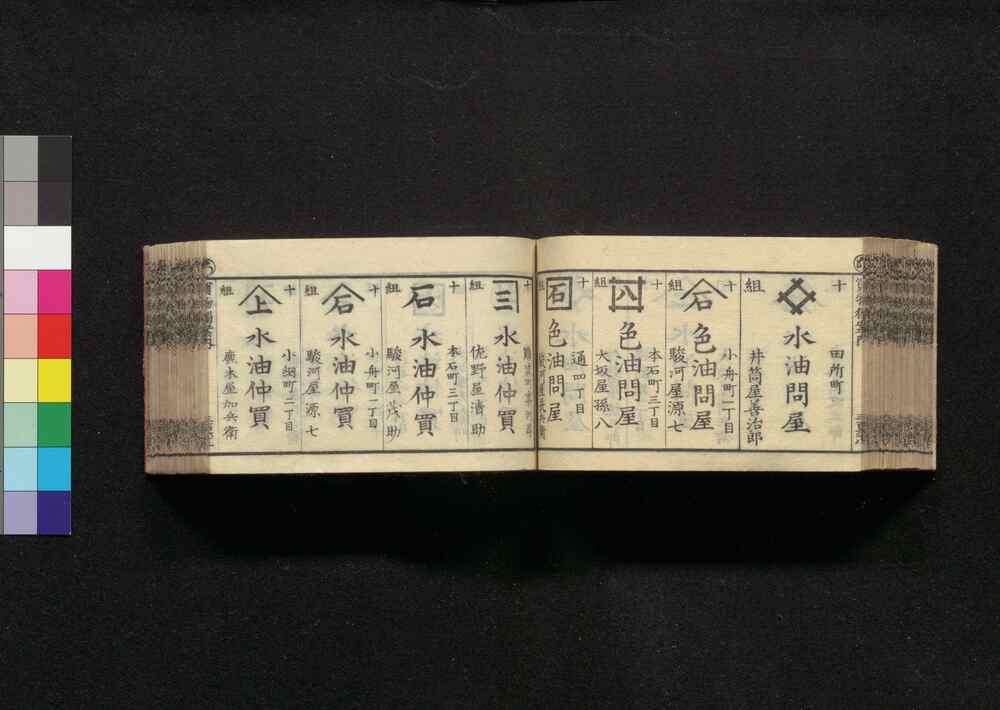 十組
水油問屋
田所町
井筒屋善治郎
十組
石
色油問屋
小舟町一丁目
駿河屋源七
十組
色油問屋
本石町三丁目
大坂屋孫八
十組
石
色油問屋
通四丁目
三
水油仲買
組
佐野屋清助
十組
石
水油仲買
本石町三丁目
駿河屋茂助
十組
石
水油仲買
小舟町一丁目
駿河屋源七
十組
上
水油仲買
小網町二丁目
廣木屋加兵衛